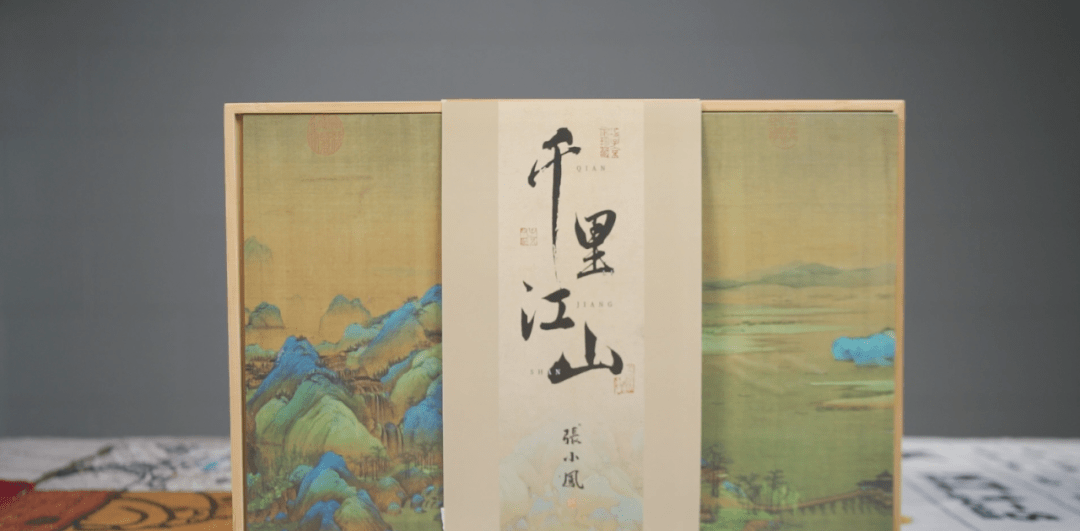 千里江山
QIAN
JIANG
SHAN
張小鳳